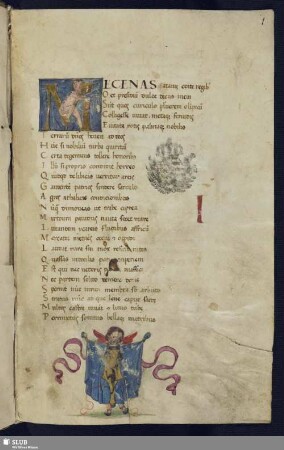 1
MECENAS atavis edite regib
O et presidiu dulce decus meu
Sunt quos curriculo pulverem olimpicu
Collegisse iuvat metaq; fervidis
Evitata rotis palmaq; nobilis
Terraru dnos evehit ad deos
Hunc si mobiliu turba quiritiu
Certat tergeminis tollere honorib
Illu si proprio condidit horreo
Quicqd de libicis verritur areis
Gaudente patrios findere sarculo
Agros athalicis condicionibus
Nunqua dimoveas ut trabe cipria
Mirtoum pavidus nauta secet mare
Luctantem icariis fluctibus africu
Mercator metuens otiu & oppidi
Laudat rura sui mox reficit rates
Quassas indocilis pauperiem pati
Est qui nec veteris pocula massici
Nec partem solido demere de die
Spernit nunc viridi membra sub arbuto
Stratus nunc ad aque lene caput sacre
Multos castra iuvant & lituo tube
Permixtus sonitus bellaq; matribus
SLUB